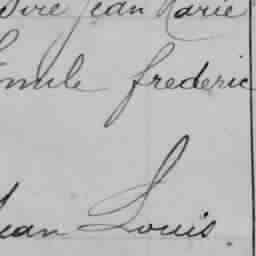 Jean Marie
Emile frederic
Jean Louis.